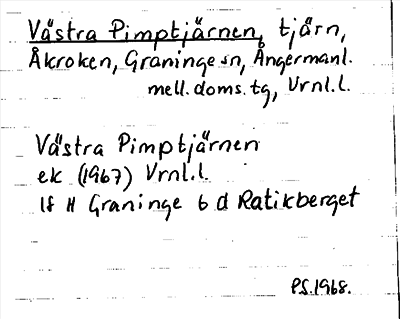 Västra Pimptjärnen, tjärn,
Åkroken, Graninge sn, Ångermanl.
mell. doms. tg, Vrnl. l.
Västra Pimptjärnen
ek (1967) Vrnl. l.
lf H Graninge 6 d Ratikberget
P.S. 1968.